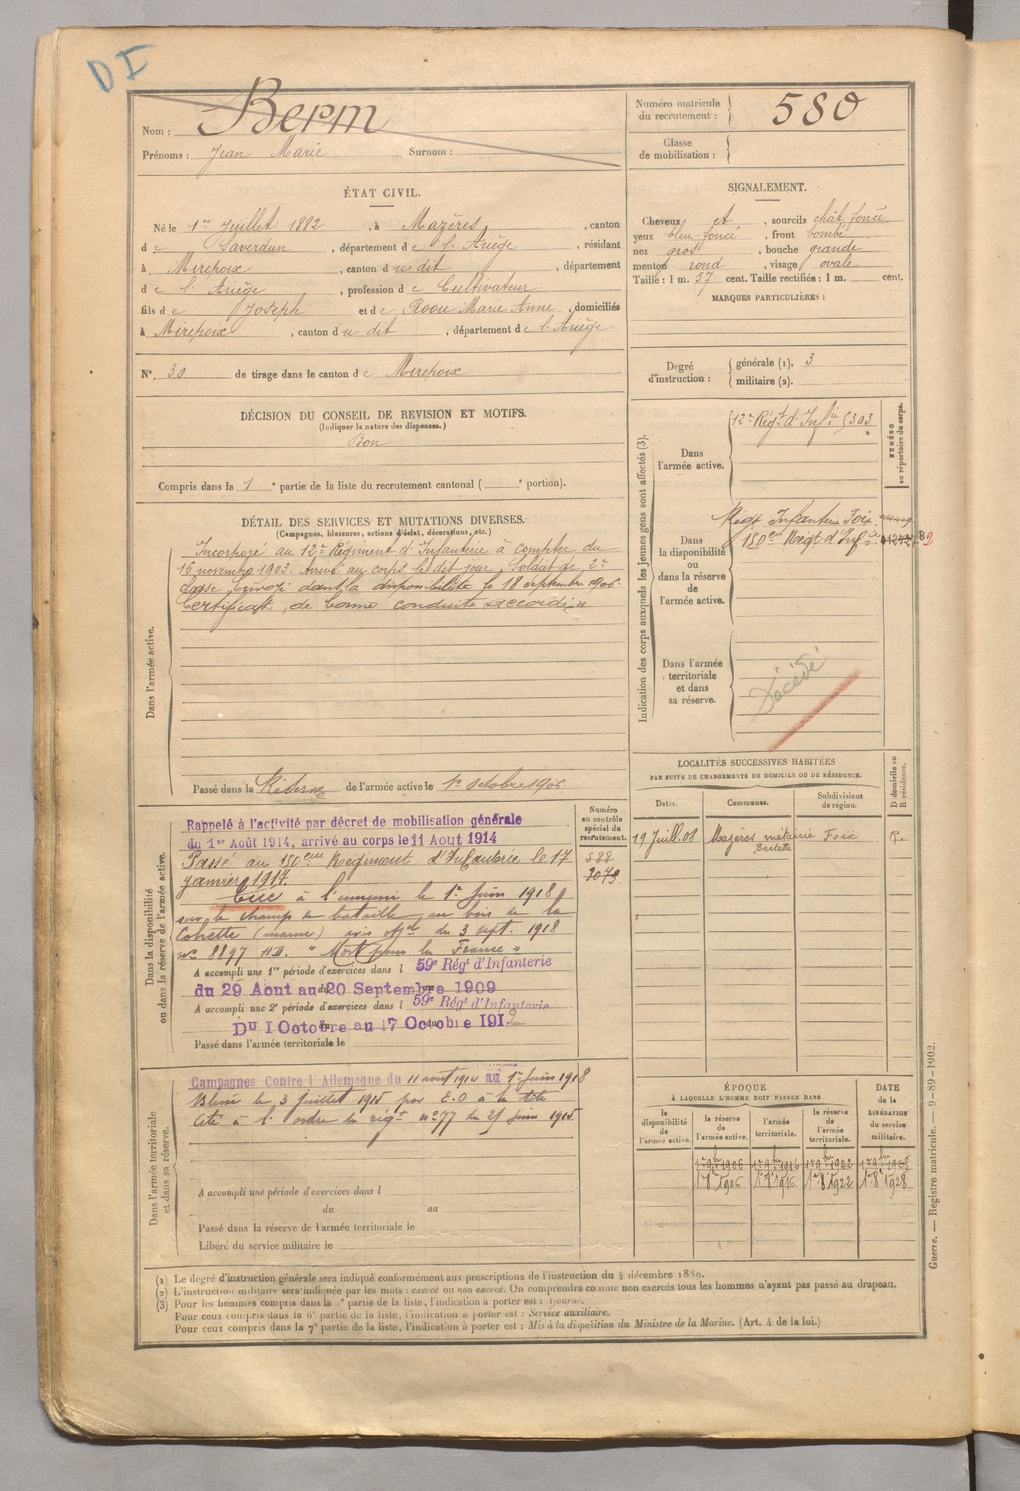 DI
Nom : Berm
Prénoms : Jean Marie Surnom :
Numéro matricule du recrutement : 580
Classe de mobilisation :
ÉTAT CIVIL.
Né le 1er Juillet 1882, à Mazères, canton
de Saverdun, département de l'Ariège, résidant
à Mirepoix, canton du dit, département
de l'Ariège, profession de Cultivateur
fils de Joseph et de Marie Anne, domiciliés
à Mirepoix, canton du dit, département de l'Ariège
No. 30 de tirage dans le canton de Mirepoix
SIGNALEMENT.
Cheveux et, sourcils chât. foncé
yeux bleu-foncé, front bombé
nez gros, bouche grande
menton rond, visage ovale
Taille : 1 m. 57 cent. Taille rectifiée : 1 m. cent.
MARQUES PARTICULIÈRES :
Degré d'instruction :
générale (1). 3
militaire (2).
DÉCISION DU CONSEIL DE REVISION ET MOTIFS.
(Indiquer la nature des dispenses.)
Bon
Compris dans la 1e partie de la liste du recrutement cantonal ( e portion).
DÉTAIL DES SERVICES ET MUTATIONS DIVERSES.
(Campagnes, blessures, actions d'éclat, décorations, etc.)
Dans l'armée active.
Incorporé au 12e Régiment d'Infanterie à compter du
16 novembre 1903. Arrivé au corps le dit jour, Soldat de 2e
classe. Envoyé dans la disponibilité le 18 septembre 1906.
Certificat de bonne conduite accordé.
Passé dans la Réserve de l'armée active le 1er octobre 1906
Indication des corps auxquels les jeunes gens sont affectés (3).
NUMÉRO au répertoire du corps.
Dans l'armée active.
12e Régt d'Infie 5303
Dans la disponibilité ou dans la réserve de l'armée active.
Régt Infanterie Foix
150eme Régt d'Infie
Dans l'armée territoriale et dans sa réserve.
Décédé
LOCALITÉS SUCCESSIVES HABITÉES
PAR SUITE DE CHANGEMENTS DE DOMICILE OU DE RÉSIDENCE.
Dates. Communes. Subdivisions de région. D domicile ou R résidence.
19 Juill. 08 Mazères métairie Foix R.
Dans la disponibilité ou dans la réserve de l'armée active.
Numéro au contrôle spécial du recrutement.
588
3079
Rappelé à l'activité par décret de mobilisation générale
du 1er Août 1914, arrivé au corps le 11 Aout 1914
Passé au 150eme Régiment d'Infanterie le 17
janvier 1917.
Tué à l'ennemi le 1er Juin 1918
sur le champ de bataille au bois de la
Cohette (marne) avis offel du 3 sept. 1918
no 8897 HD. "Mort pour la France"
A accompli une 1re période d'exercices dans l 59e Régt d'Infanterie
du 29 Aout au 20 Septembre 1909
A accompli une 2e période d'exercices dans l 59e Régt d'Infanterie
Du 1 Octobre au 17 Octobre 1912
Passé dans l'armée territoriale le
Dans l'armée territoriale et dans sa réserve.
Campagnes Contre l'Allemagne du 11 aout 1914 au 1er Juin 1918
Blessé le 3 juillet 1915 par E.O à la tête
Cité à l'ordre du régt no 77 du 25 Juin 1915
A accompli une période d'exercices dans l
du au
Passé dans la réserve de l'armée territoriale le
Libéré du service militaire le
ÉPOQUE
À LAQUELLE L'HOMME DOIT PASSER DANS
DATE de la LIBÉRATION du service militaire.
la disponibilité de l'armée active. la réserve de l'armée active. l'armée territoriale. la réserve de l'armée territoriale.
1er 9bre 1906 1er 9bre 1916 1er 9bre 1922 1er 9bre 1928
1er 8 1906 1er 8 1916 1er 8 1922 1er 8 1928
(1) Le degré d'instruction générale sera indiqué conformément aux prescriptions de l'instruction du 4 décembre 1889.
(2) L'instruction militaire sera indiquée par les mots : exercé ou non exercé. On comprendra comme non exercés tous les hommes n'ayant pas passé au drapeau.
(3) Pour les hommes compris dans la e partie de la liste, l'indication à porter est : Ajourné.
Pour ceux compris dans la 6e partie de la liste, l'indication à porter est : Service auxiliaire.
Pour ceux compris dans la 7e partie de la liste, l'indication à porter est : Mis à la disposition du Ministre de la Marine. (Art. 4 de la loi.)
Guerre. — Registre matricule. — 9-89-1902.